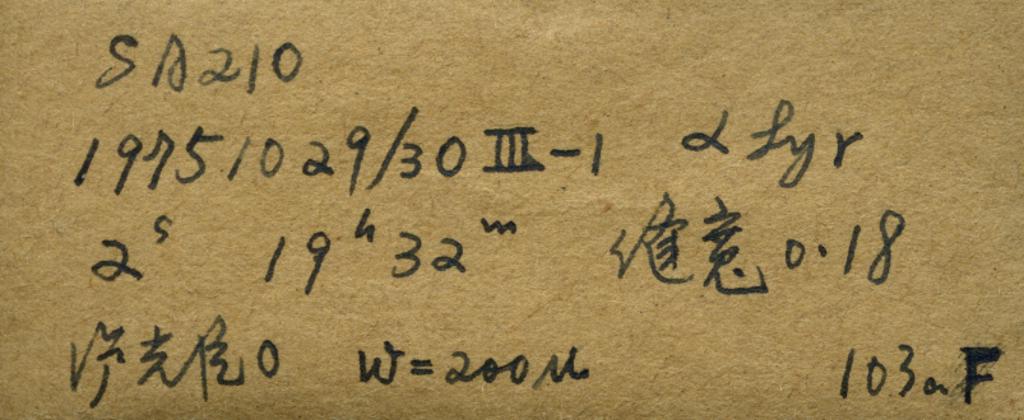 SA210
1975 10 29/30 III-1 α Lyr
2ˢ 19ʰ32ᵐ 缝宽 0.18
0 W=200μ 103aF